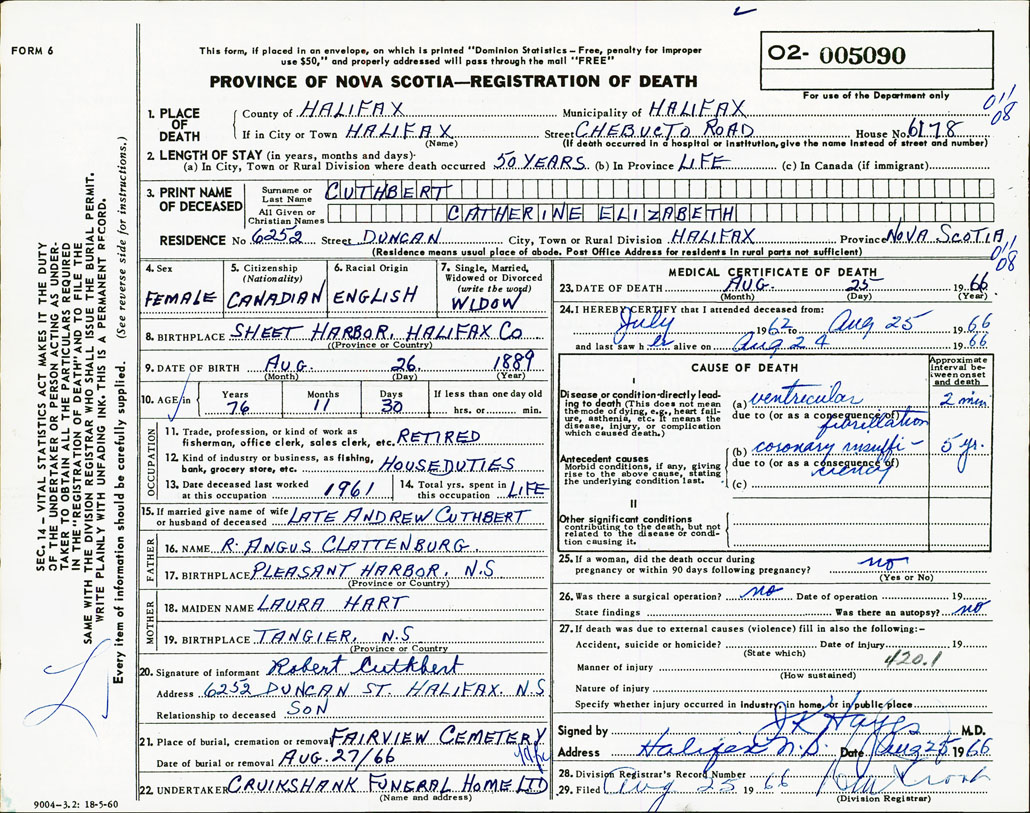 FORM 6
This form, if placed in an envelope, on which is printed "Dominion Statistics – Free, penalty for improper
use $50," and properly addressed will pass through the mail "FREE"
PROVINCE OF NOVA SCOTIA—REGISTRATION OF DEATH
O2- 005090
For use of the Department only
011
08
1. PLACE OF DEATH
County of HALIFAX Municipality of HALIFAX
If in City or Town HALIFAX Street CHEBUCTO ROAD House No. 6178
(Name) (If death occurred in a hospital or institution, give the name instead of street and number)
2. LENGTH OF STAY (in years, months and days)-
(a) In City, Town or Rural Division where death occurred 50 YEARS (b) In Province LIFE (c) In Canada (if immigrant)
3. PRINT NAME OF DECEASED
Surname or Last Name CUTHBERT
All Given or Christian Names CATHERINE ELIZABETH
RESIDENCE No. 6252 Street DUNCAN City, Town or Rural Division HALIFAX Province NOVA SCOTIA
(Residence means usual place of abode. Post Office Address for residents in rural parts not sufficient)
011
08
4. Sex FEMALE
5. Citizenship (Nationality) CANADIAN
6. Racial Origin ENGLISH
7. Single, Married, Widowed or Divorced (write the word) WIDOW
8. BIRTHPLACE SHEET HARBOR, HALIFAX CO
(Province or Country)
9. DATE OF BIRTH AUG. 26. 1889
(Month) (Day) (Year)
10. AGE in Years 76 Months 11 Days 30 If less than one day old hrs. or min.
OCCUPATION
11. Trade, profession, or kind of work as
fisherman, office clerk, sales clerk, etc. RETIRED
12. Kind of industry or business, as fishing,
bank, grocery store, etc. HOUSEDUTIES
13. Date deceased last worked at this occupation 1961
14. Total yrs. spent in this occupation LIFE
15. If married give name of wife
or husband of deceased LATE ANDREW CUTHBERT
FATHER
16. NAME R. ANGUS CLATTENBURG.
17. BIRTHPLACE PLEASANT HARBOR, N.S
(Province or Country)
MOTHER
18. MAIDEN NAME LAURA HART
19. BIRTHPLACE TANGIER, N.S.
(Province or Country)
20. Signature of informant Robert Cuthbert
Address 6252 DUNCAN ST. HALIFAX. N.S
Relationship to deceased SON
21. Place of burial, cremation or removal FAIRVIEW CEMETERY
Date of burial or removal AUG. 27/66
22. UNDERTAKER CRUIKSHANK FUNERAL HOME LTD
(Name and address)
MEDICAL CERTIFICATE OF DEATH
23. DATE OF DEATH AUG. 25 1966
(Month) (Day) (Year)
24. I HEREBY CERTIFY that I attended deceased from:
July 1962 to Aug 25 1966
and last saw her alive on Aug 24 1966
CAUSE OF DEATH
Approximate interval between onset and death
I
Disease or condition directly leading to death (This does not mean
the mode of dying, e.g., heart failure, asthenia, etc. It means the
disease, injury, or complication which caused death.)
(a) ventricular fibrillation 2 min.
due to (or as a consequence of)
Antecedent causes
Morbid conditions, if any, giving rise to the above cause, stating
the underlying condition last.
(b) coronary insufficiency 5 yr.
due to (or as a consequence of)
(c)
II
Other significant conditions
contributing to the death, but not
related to the disease or condition causing it.
25. If a woman, did the death occur during
pregnancy or within 90 days following pregnancy? no
(Yes or No)
26. Was there a surgical operation? no Date of operation 19
State findings Was there an autopsy? no
27. If death was due to external causes (violence) fill in also the following:–
Accident, suicide or homicide? Date of injury 19
(State which)
420.1
Manner of injury
(How sustained)
Nature of injury
Specify whether injury occurred in industry, in home, or in public place
Signed by J K Hayes M.D.
Address Halifax N.S. Date Aug 25 1966
28. Division Registrar's Record Number
29. Filed Aug 25 1966
(Division Registrar)
9004–3.2: 18-5-60
SEC. 14 – VITAL STATISTICS ACT MAKES IT THE DUTY
OF THE UNDERTAKER OR PERSON ACTING AS UNDER-
TAKER TO OBTAIN ALL THE PARTICULARS REQUIRED
IN THE "REGISTRATION OF DEATH" AND TO FILE THE
SAME WITH THE DIVISION REGISTRAR WHO SHALL ISSUE THE BURIAL PERMIT.
WRITE PLAINLY WITH UNFADING INK. THIS IS A PERMANENT RECORD.
Every item of information should be carefully supplied. (See reverse side for instructions.)